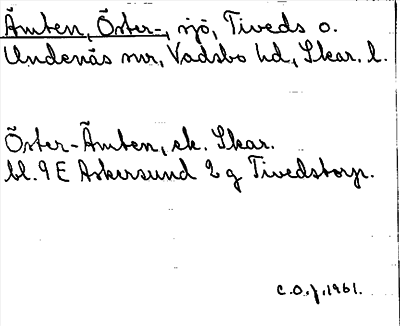 Ämten, Öster-, sjö, Tiveds o.
Undenäs snr, Vadsbo hd, Skar. l.
Öster-Ämten, ek. Skar.
bl. 9 E Askersund 2 g Tivedstorp.
C.O.J. 1961.